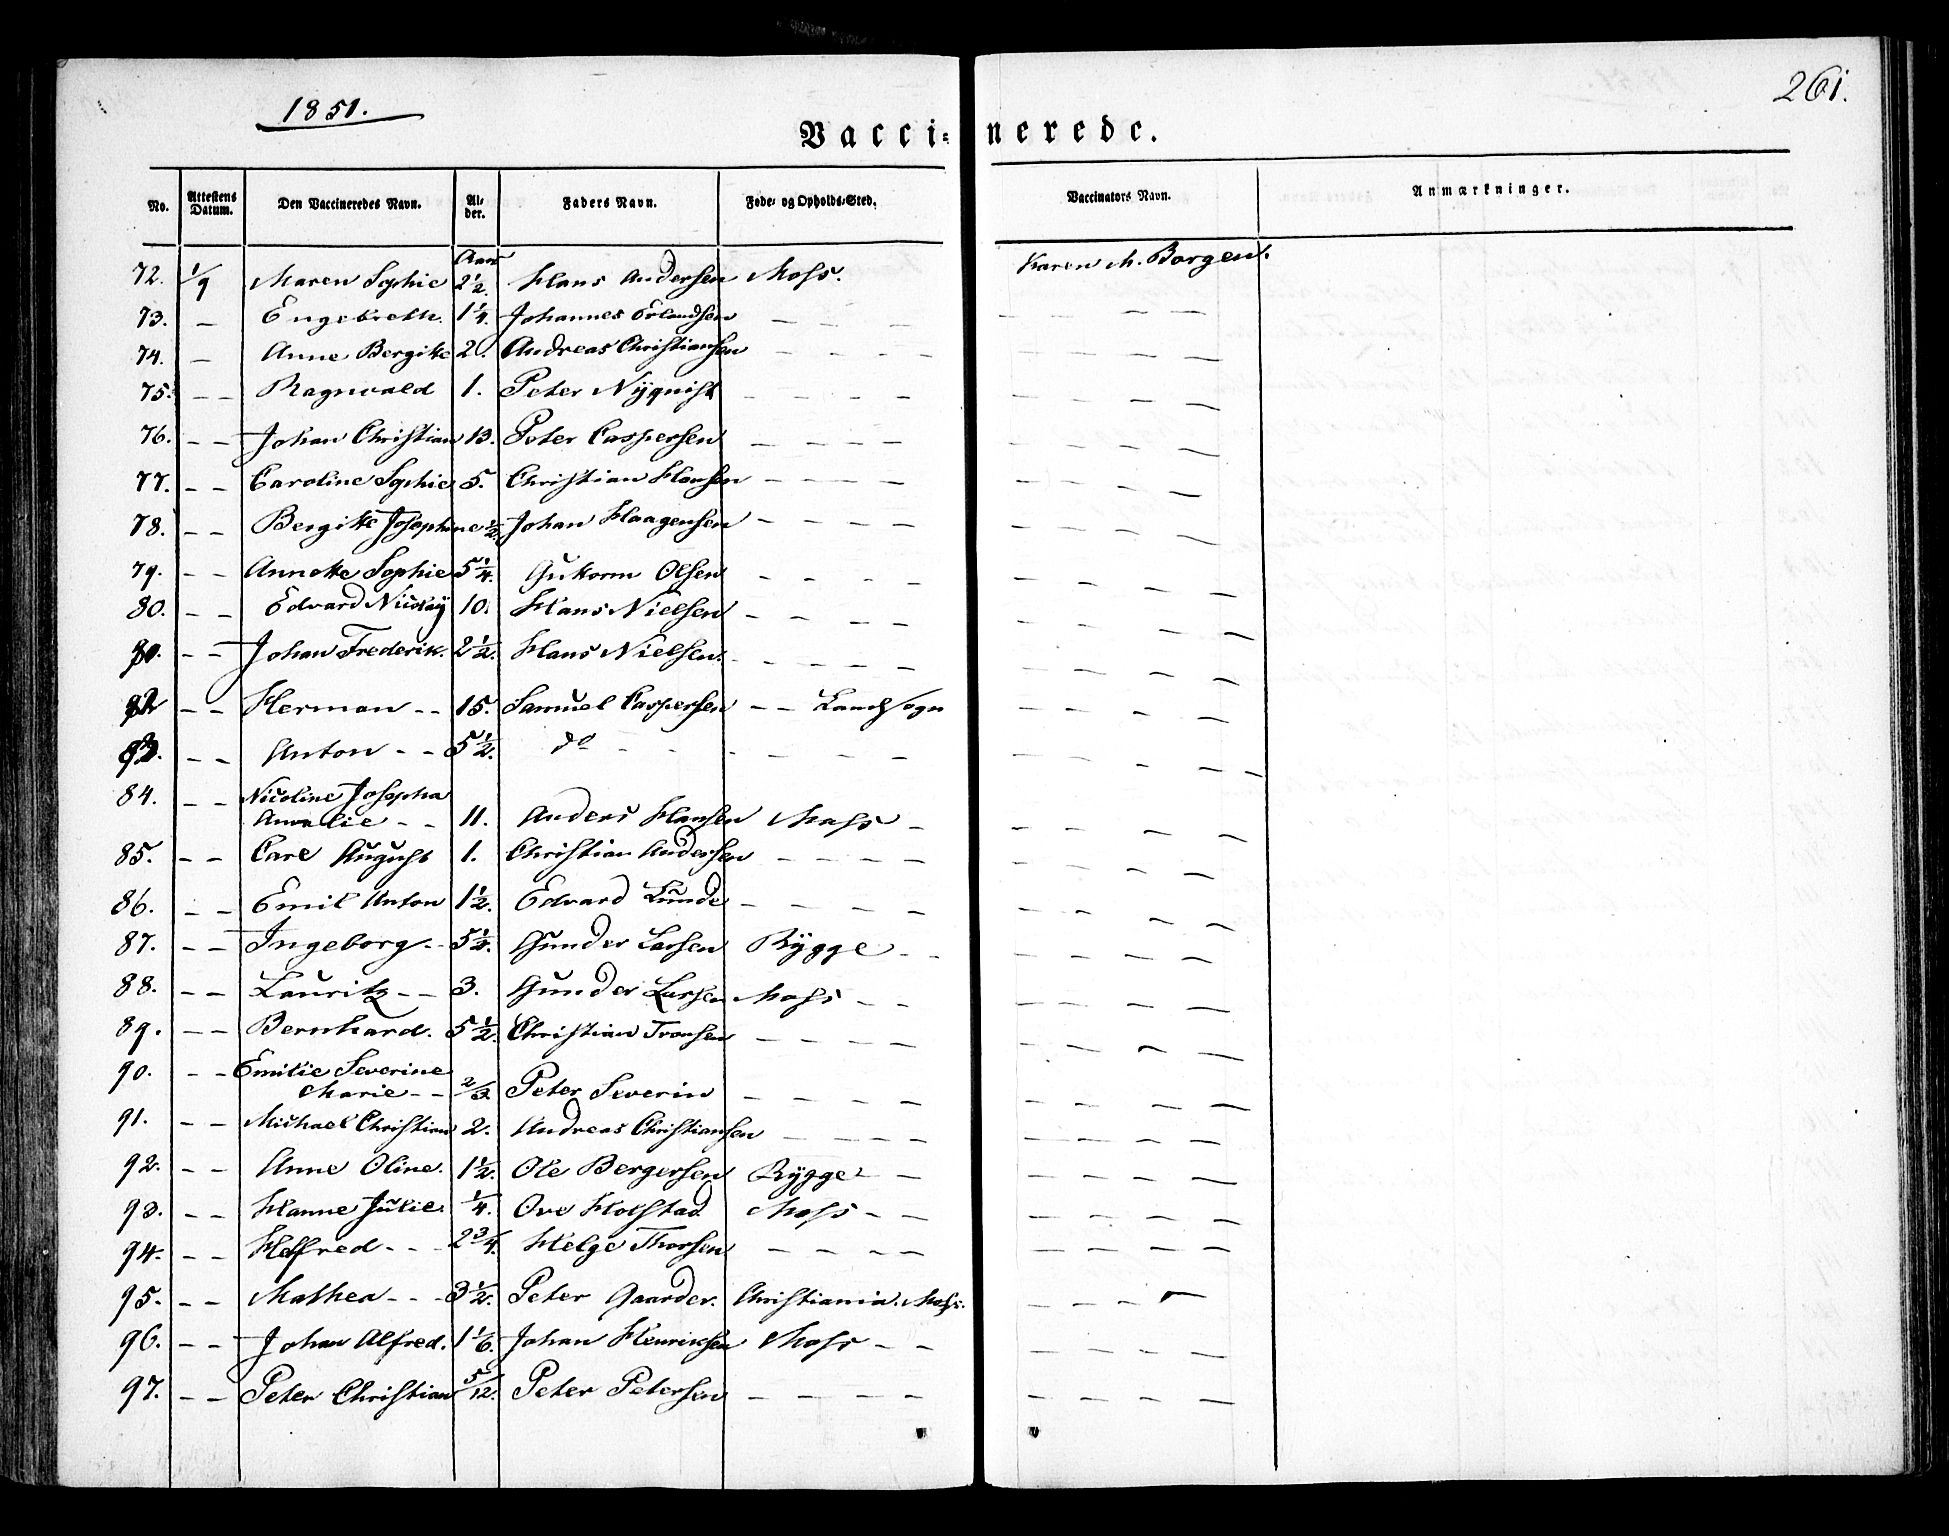 261.
1851.
Vaccinerede.
No. Attestens Datum. Den Vaccineredes Navn. Alder. Faders Navn. Føde- og Opholds-Sted. Vaccinators Navn. Anmærkninger.
Aar
72. 1/9 Maren Sophie 2 1/2. Hans Andersen Moss. Karen M. Borgen.
73. – Engebreth. 1 1/4. Johannes Erlandsen – – – – – – – –
74. – Anne Bergitte 2. Andreas Christiansen – – – – – – – –
75. – – Ragnvald 1. Peter Nÿquist – – – – – – – –
76. – – Johan Christian 13. Peter Caspersen – – – – – – – –
77. – – Caroline Sophie 5. Christian Hansen – – – – – – – –
78. – – Bergitte Josephine 1/2. Johan Haagensen – – – – – – – –
79. – – Annette Sophie 5 1/4. Guttorm Olsen – – – – – – – –
80. – – Edvard Nicolaÿ 10. Hans Nielsen – – – – – – – – –
81. – – Johan Frederik. 2 1/2. Hans Nielsen. – – – – – – – – –
82 – – Herman – – 15. Samuel Caspersen – – Landsogn – – – –
83. – – Anton – – 5 1/2. do – – – – – – – – – – –
84. – – Nicoline Josepha
Amalie – – 11. Anders Hansen Moss – – – – –
85. – – Carl August 1. Christian Andersen – – – – – – – –
86. – – Emil Anton 1 1/2. Edvard Lunde – – – – – – – –
87. – – Ingeborg – – 5 1/4. Gunder Larsen Rÿgge – – – – – –
88. – – Lauritz – – 3. Gunder Larsen Moss – – – – – –
89. – – Bernhard. 5 1/2. Christian Tronsen – – – – – – – –
90. – – Emilie Severine
Marie – – 2/3. Peter Severin – – – – – – – –
91. – – Michael Christian 2. Andreas Christiansen – – – – – – – –
92. – – Anne Oline. 1 1/2. Ole Bergersen Rÿgge – – – – – –
93. – – Hanne Julie. 1/4. Ove Holstad Moss – – – – – –
94. – – Helfred – – – 2 3/4. Helge Thorsen – – – – – – – –
95. – – Mathea – – – 3 1/2. Peter Gaarder. Christiania. Moss. – – – –
96. – – Johan Alfred. 1 1/6. Johan Henriksen Moss – – – – – –
97. – – Peter Christian 5/12. Peter Petersen – – – – – – – –